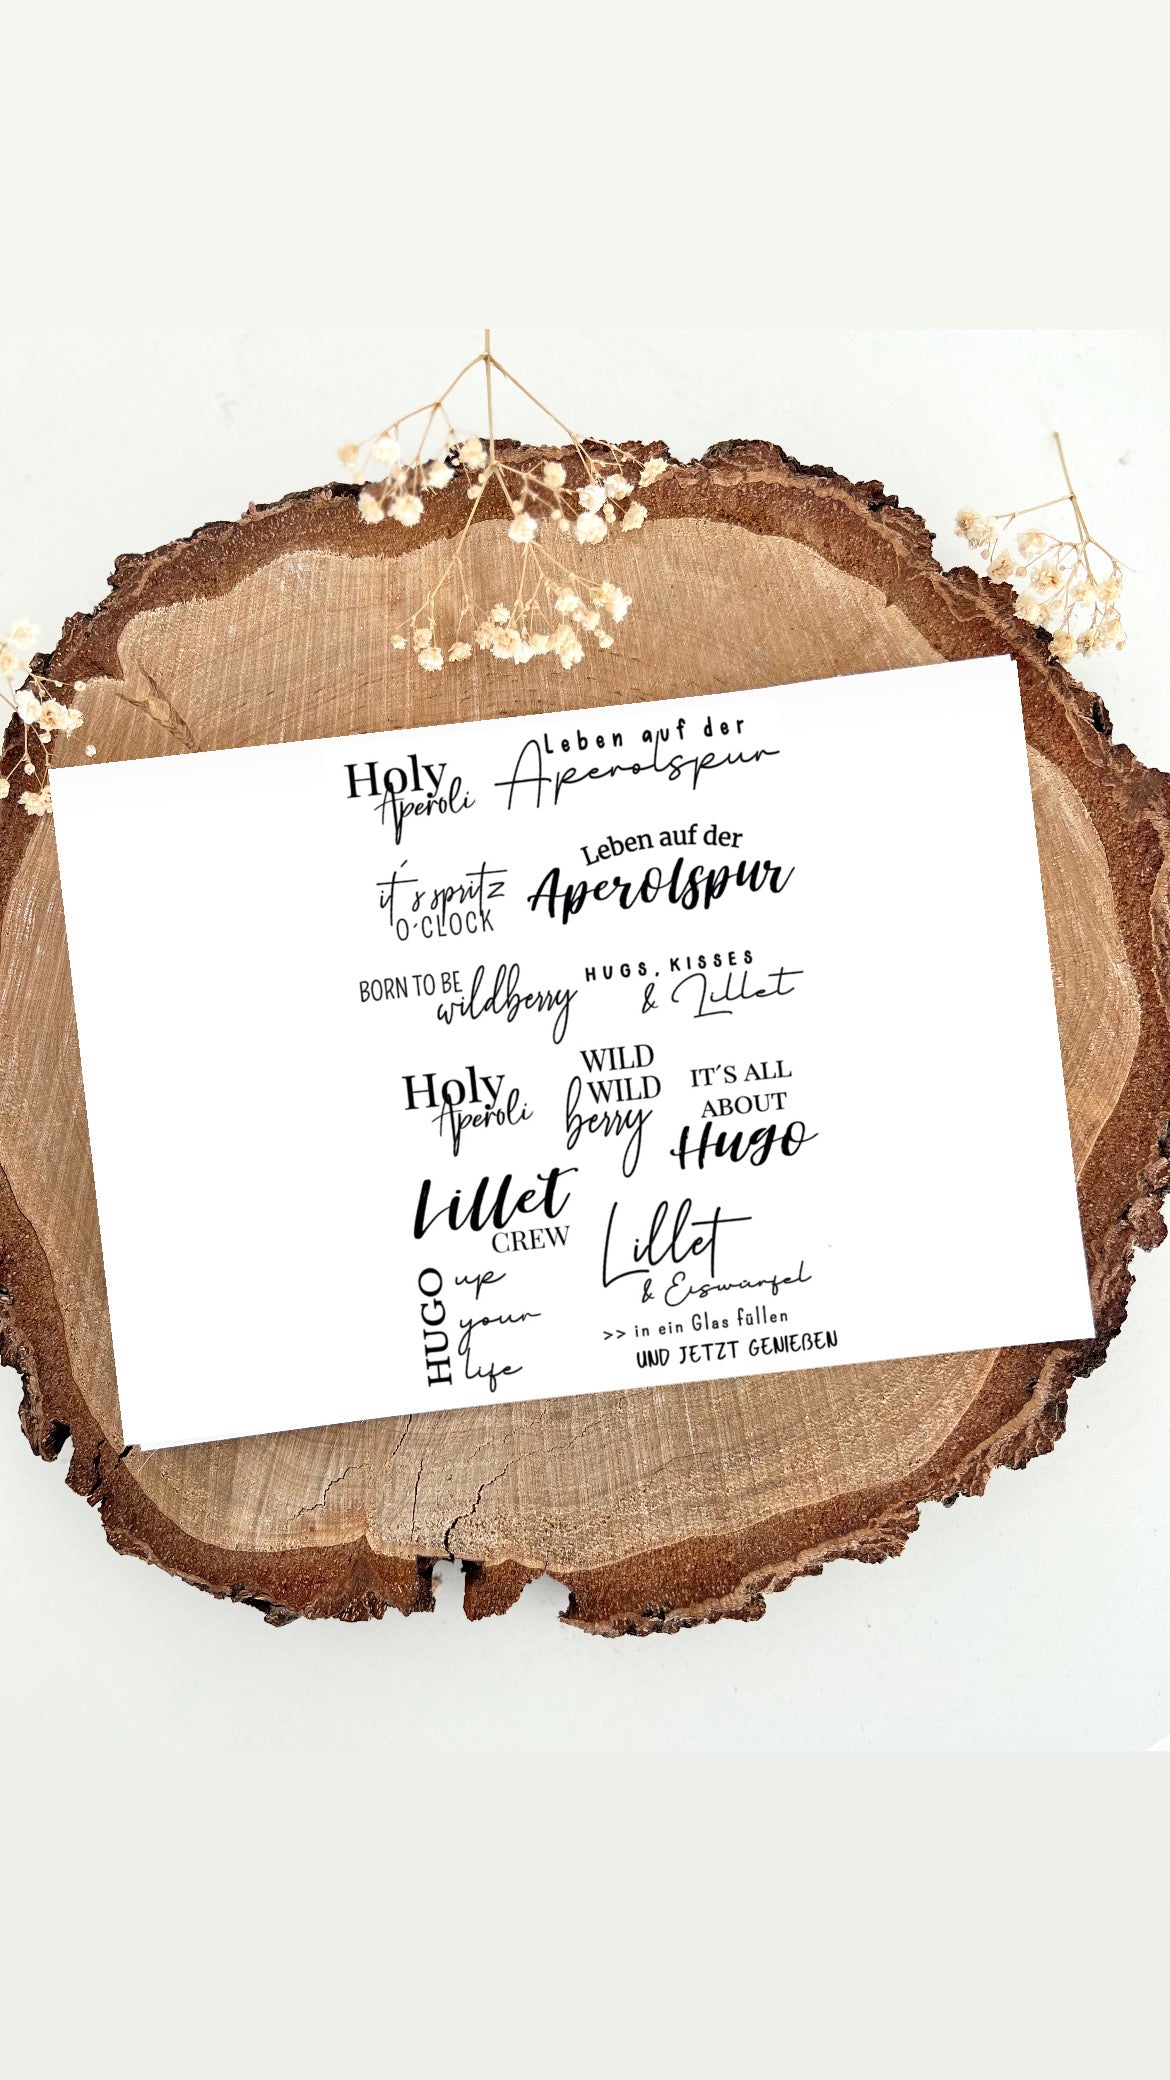 Holy
Aperoli
Leben auf der
Aperolspur
it´s spritz
O´CLOCK
Leben auf der
Aperolspur
BORN TO BE
wildberry
HUGS, KISSES
& Lillet
Holy
Aperoli
WILD
WILD
berry
IT´S ALL
ABOUT
Hugo
Lillet
CREW
Lillet
& Eiswürfel
>> in ein Glas füllen
UND JETZT GENIEßEN
HUGO
up
your
life